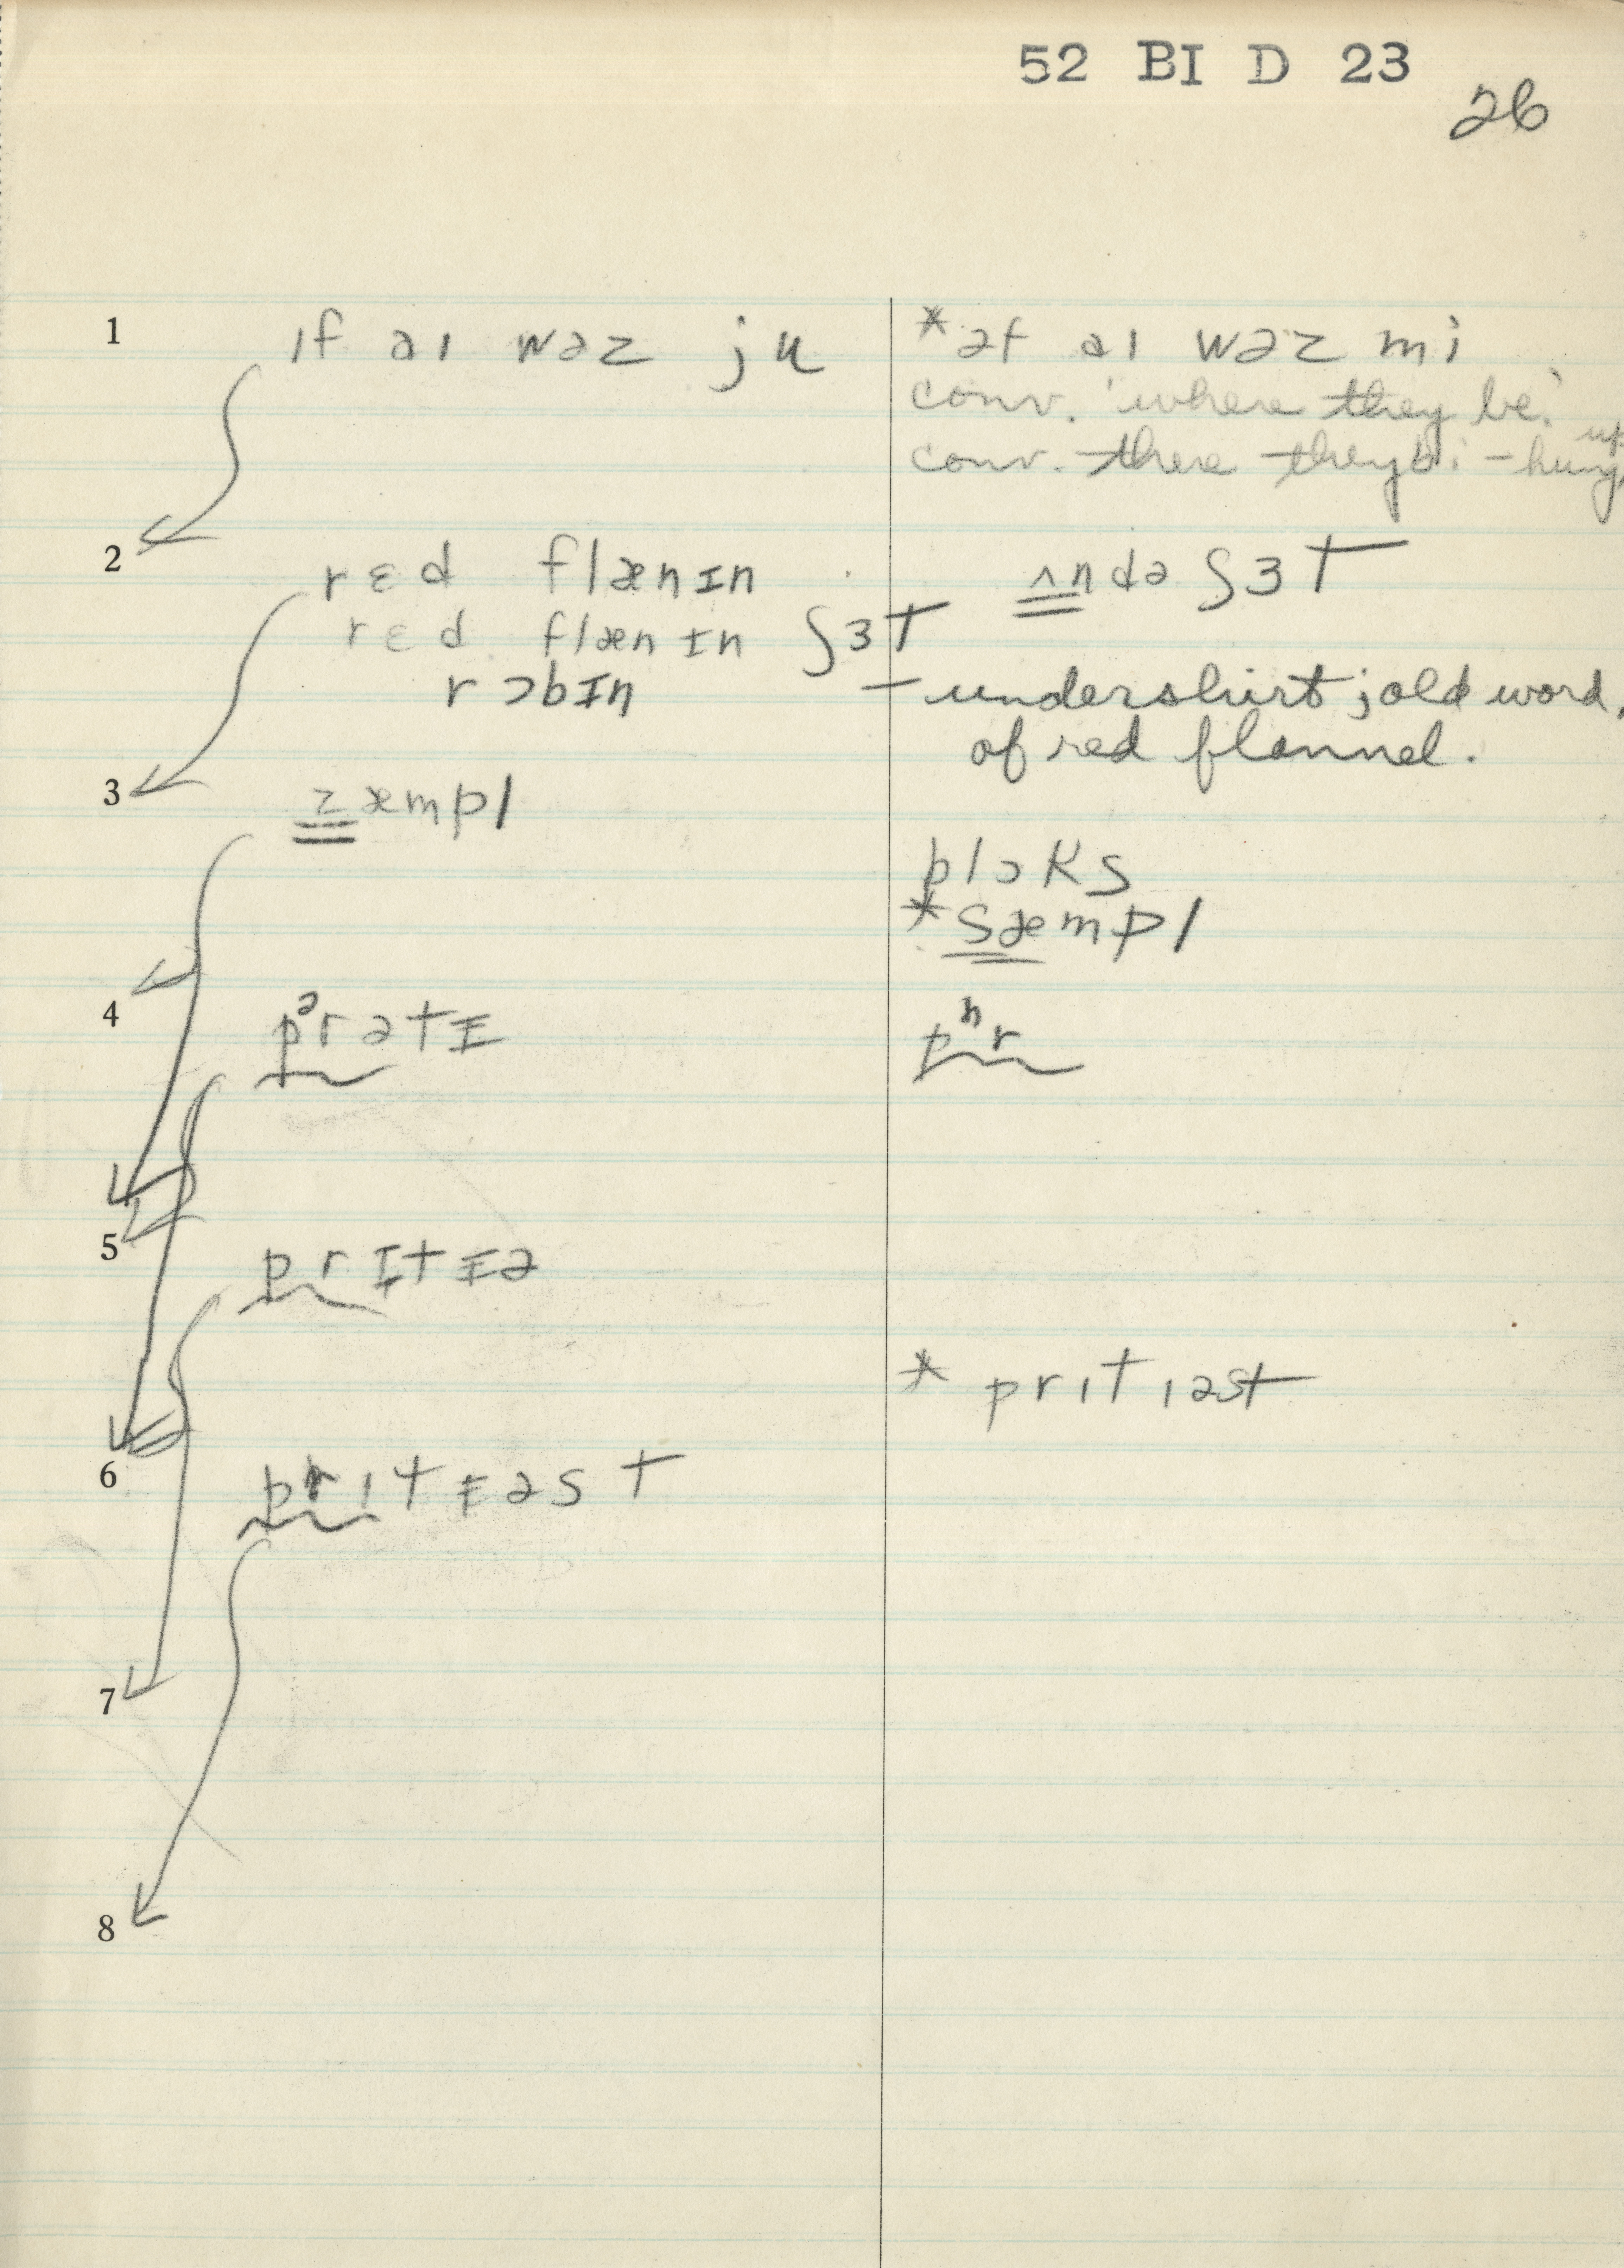 52 BI D 23
26
1 ıf aı wəz ju
*əf aı wəz mi
conv. 'where they be.'
conv. there they bi – hung up
2 rɛd flænɪn
ʌndə ʃɜt
rɛd flænɪn ʃɜt
rɔbɪn
– undershirt; old word,
of red flannel.
3 zæmpl
plɔks
*sæmpl
4 pᵊrətɪ
pʰr
5 prɪtɪə
* prıtıəst
6 prıtɪəst
7
8